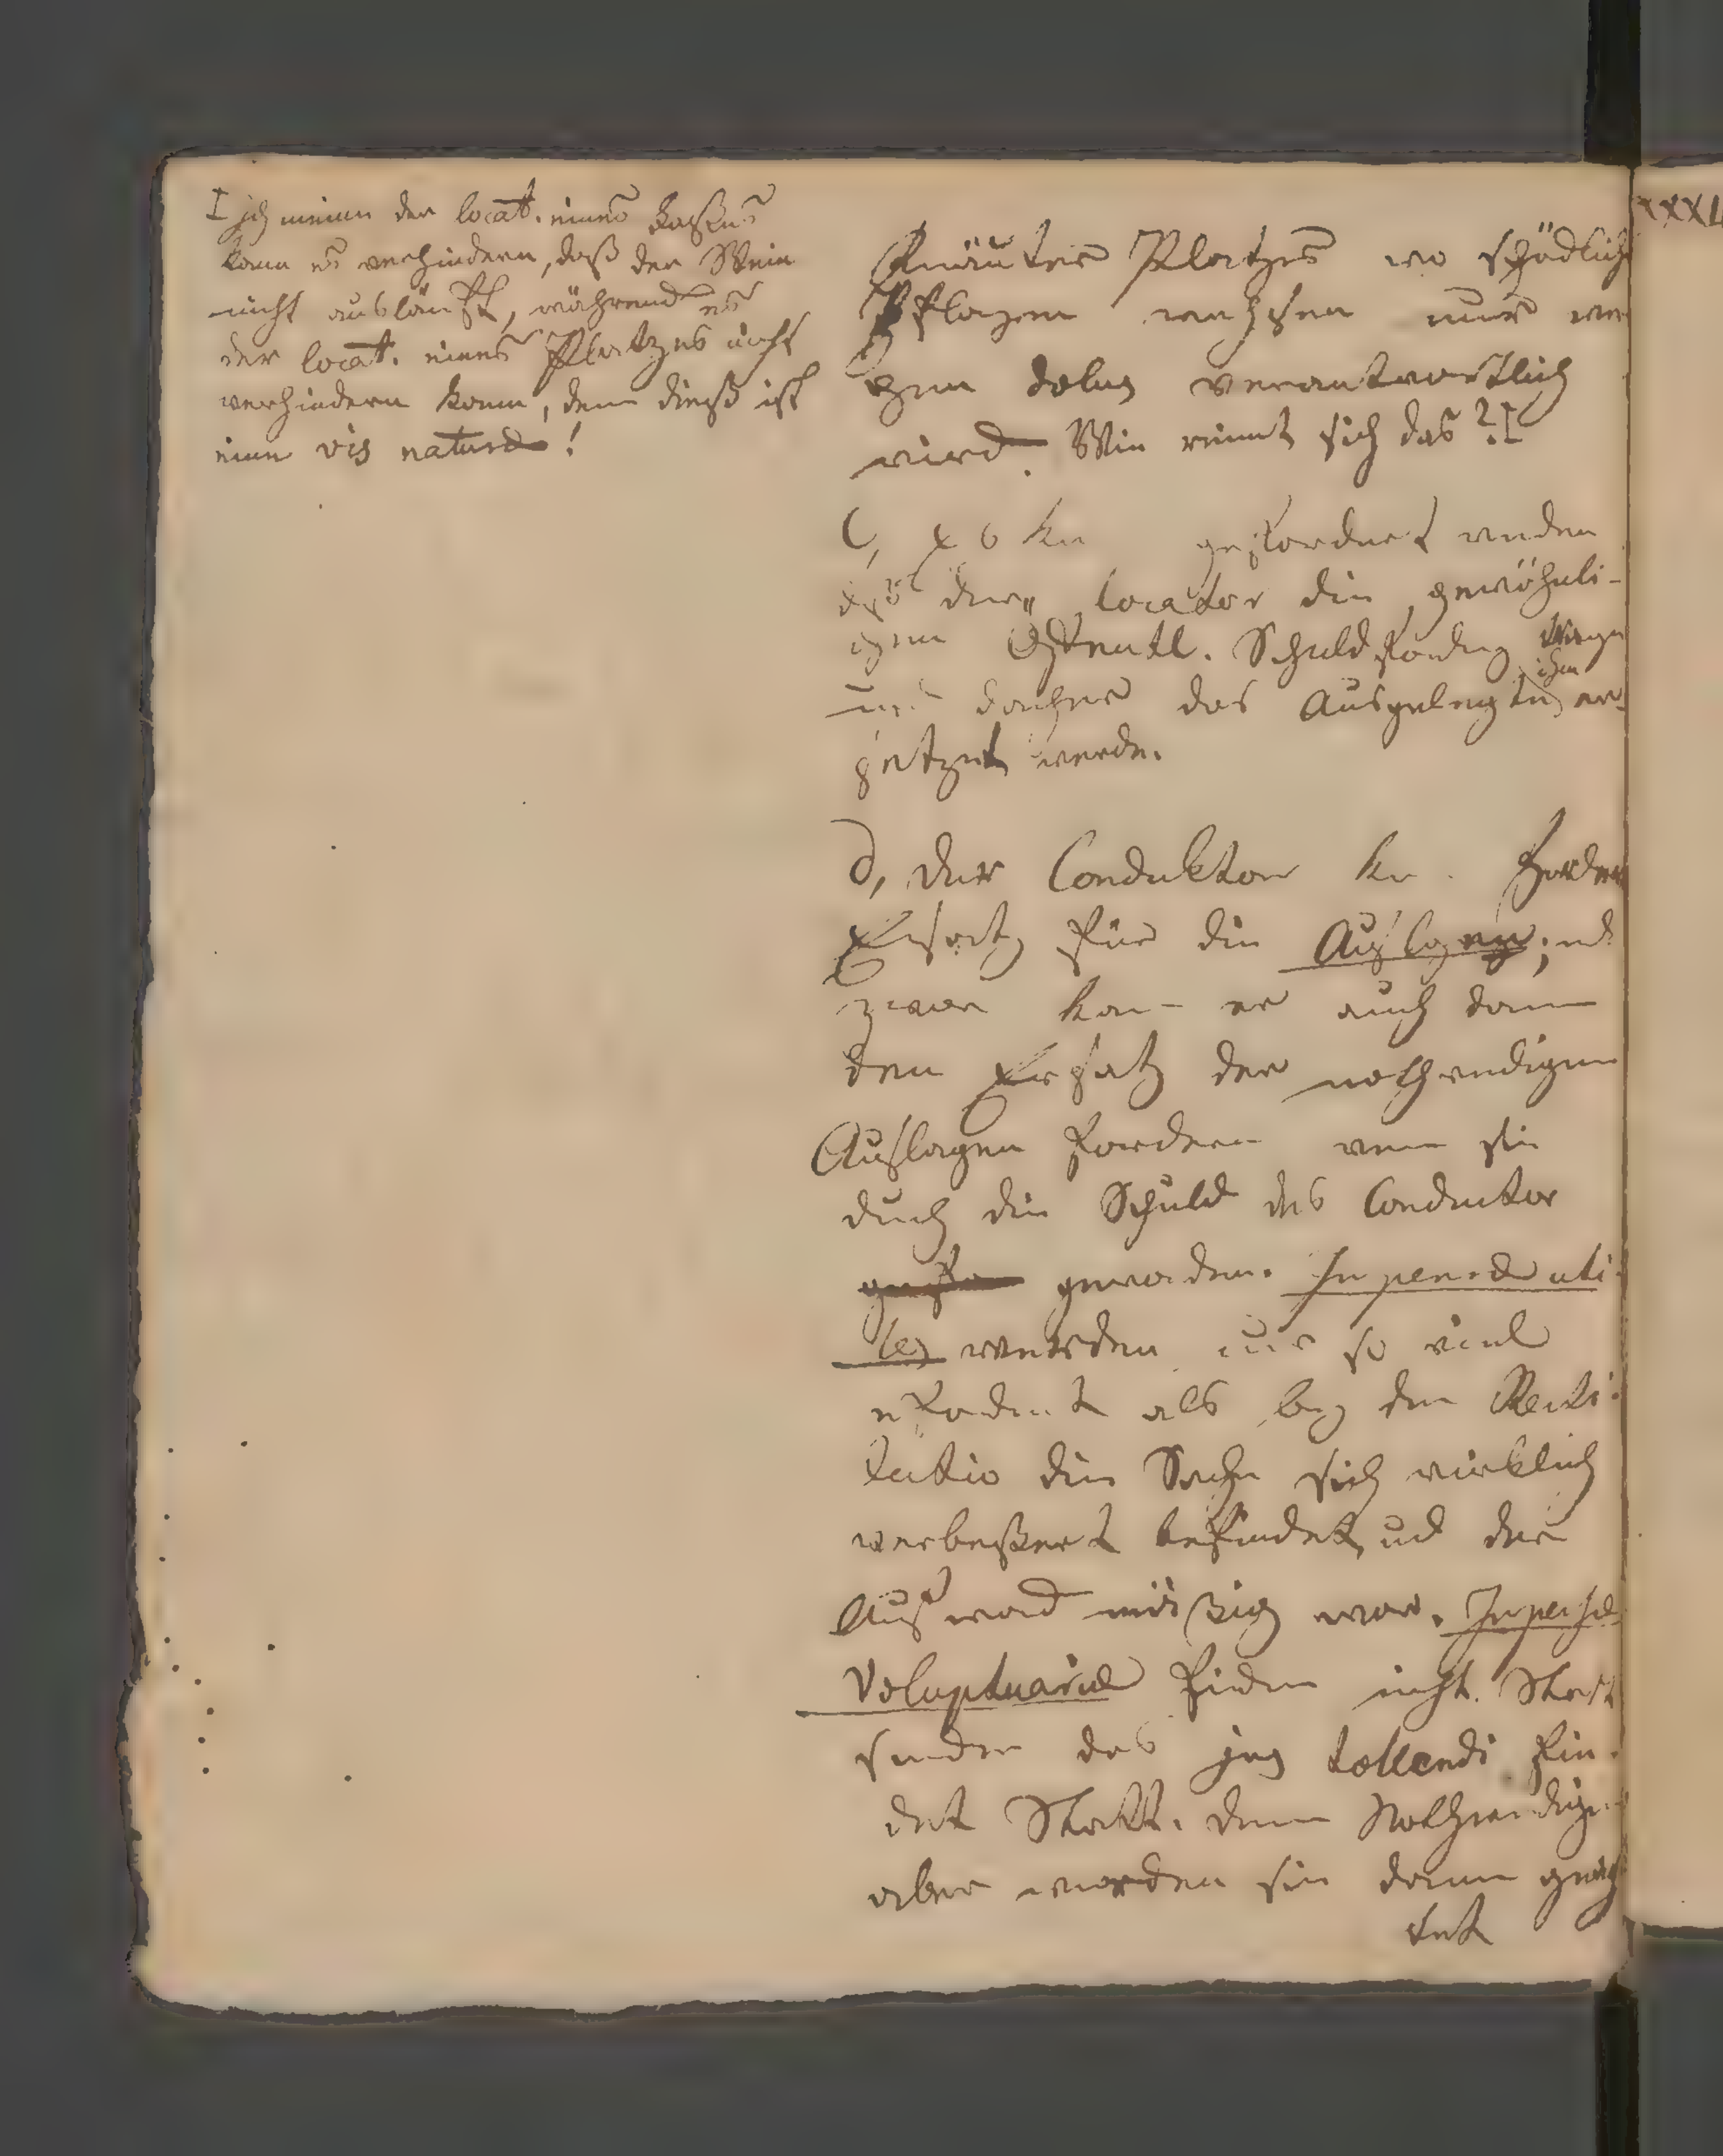 I ich meine der locat. eines Faßes
kann es verhindern, daß der Wein
nicht ausläuft, während es
der locat. eines Platzes nicht
verhindern kann, denn dieß ist
eine vis naturae!
Kräuter Platzes wo schädliche
wachsen nur we
gen dolus verantwortlich
wird. Wie reimt sich das?I
C, Es kn gefordert werden
daß der locator die gewöhnli-
chen öffentl.
und daher das Ausgelegte ihm er-
setzet werde.
d, Der Conduktor kn. fordern
Ersatz für die Auslagen; und
zwar kan er auch dann
den Ersatz der nothwendigen
Auslagen fordern wenn sie
durch die Schuld des Conductor
geworden. Inpensae uti-
les werden nur so viel
als bey der Resti-
tutio die Sache sich wirklich
verbeßert befindet, und der
Aufwand mäßig war. Inpensae
Voluptuariae finden nicht Statt
sondern das jus tollendi fin-
det Statt. Den Nothwendigen
aber werden sie dann geach
tet
XXXI